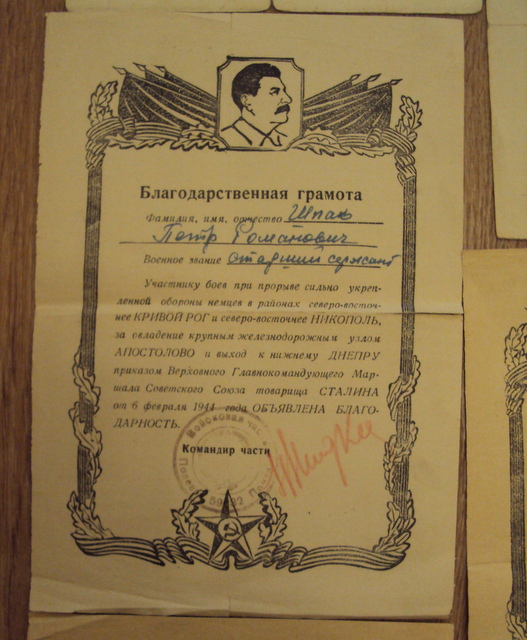 Благодарственная грамота
Фамилия, имя, отчество Шпак
Петр Романович
Военное звание старший сержант
Участнику боев при прорыве сильно укреп-
ленной обороны немцев в районах северо-восточ-
нее КРИВОЙ РОГ и северо-восточнее НИКОПОЛЬ,
за овладение крупным железнодорожным узлом
АПОСТОЛОВО и выход к нижнему ДНЕПРУ
приказом Верховного Главнокомандующего Мар-
шала Советского Союза товарища СТАЛИНА
от 6 февраля 1944 года ОБЪЯВЛЕНА БЛАГО-
ДАРНОСТЬ.
Войсковая часть
Командир части